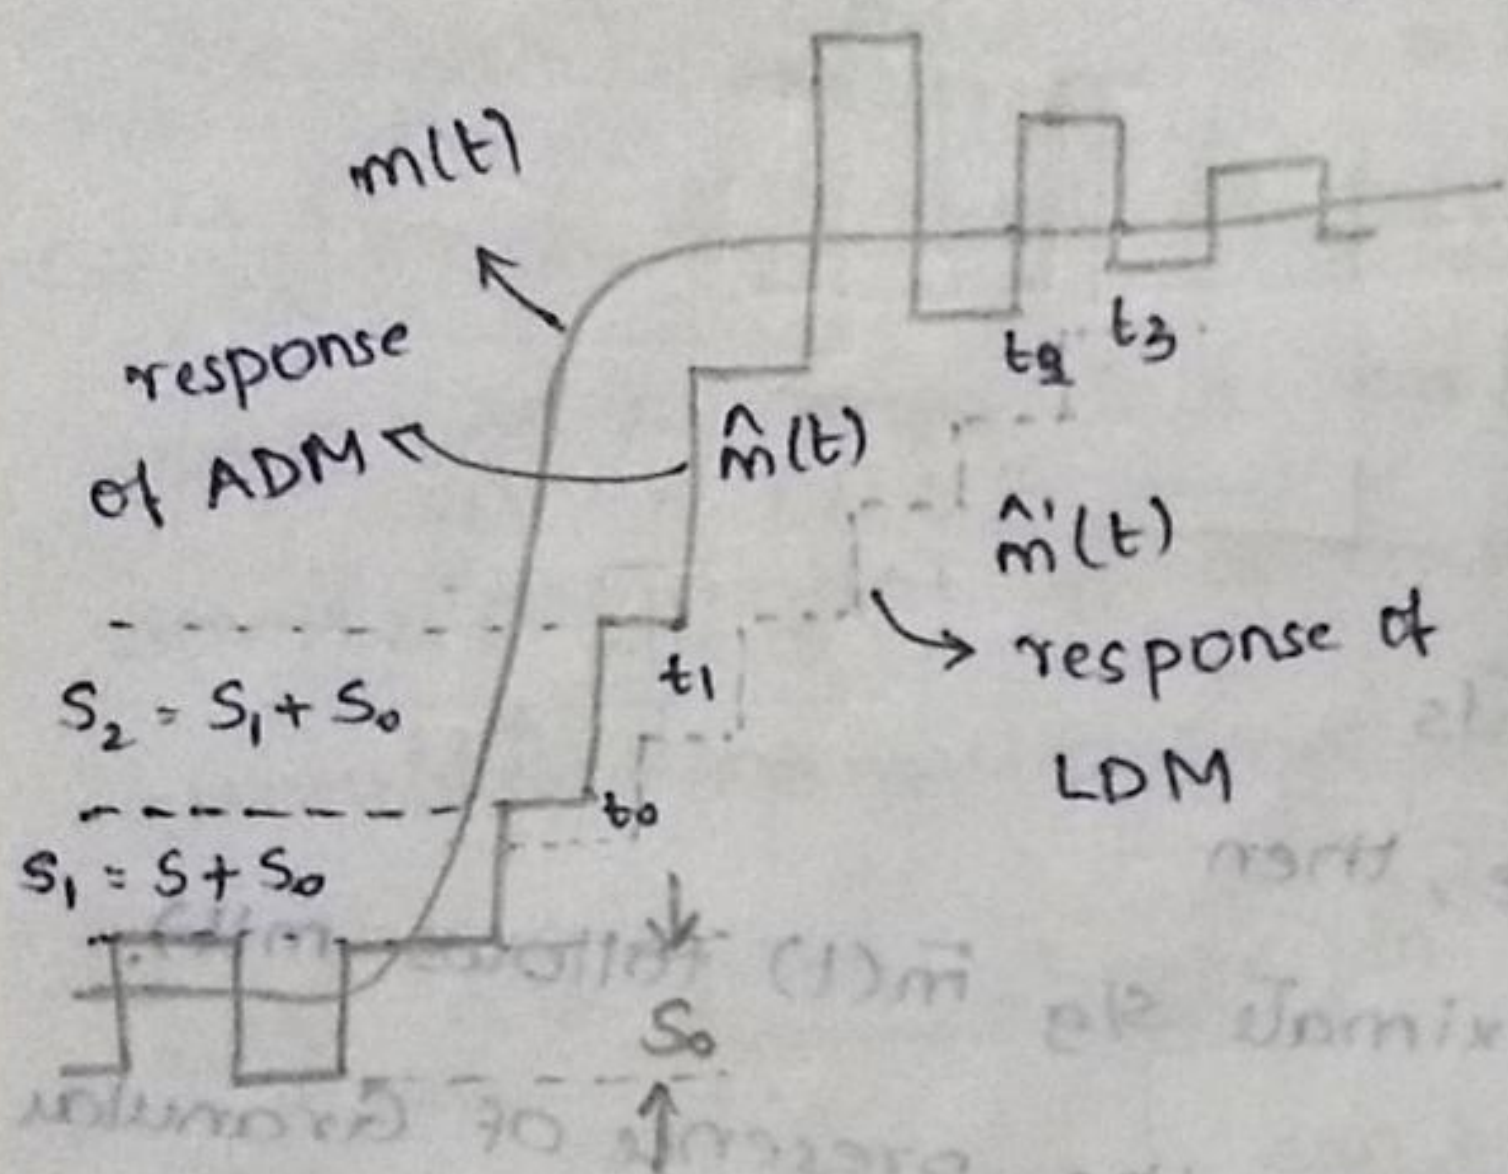 m(t)
response
of ADM
m̂(t)
t2
t3
m̂'(t)
response of
LDM
S2 = S1 + S0
t1
t0
S1 = S + S0
S0